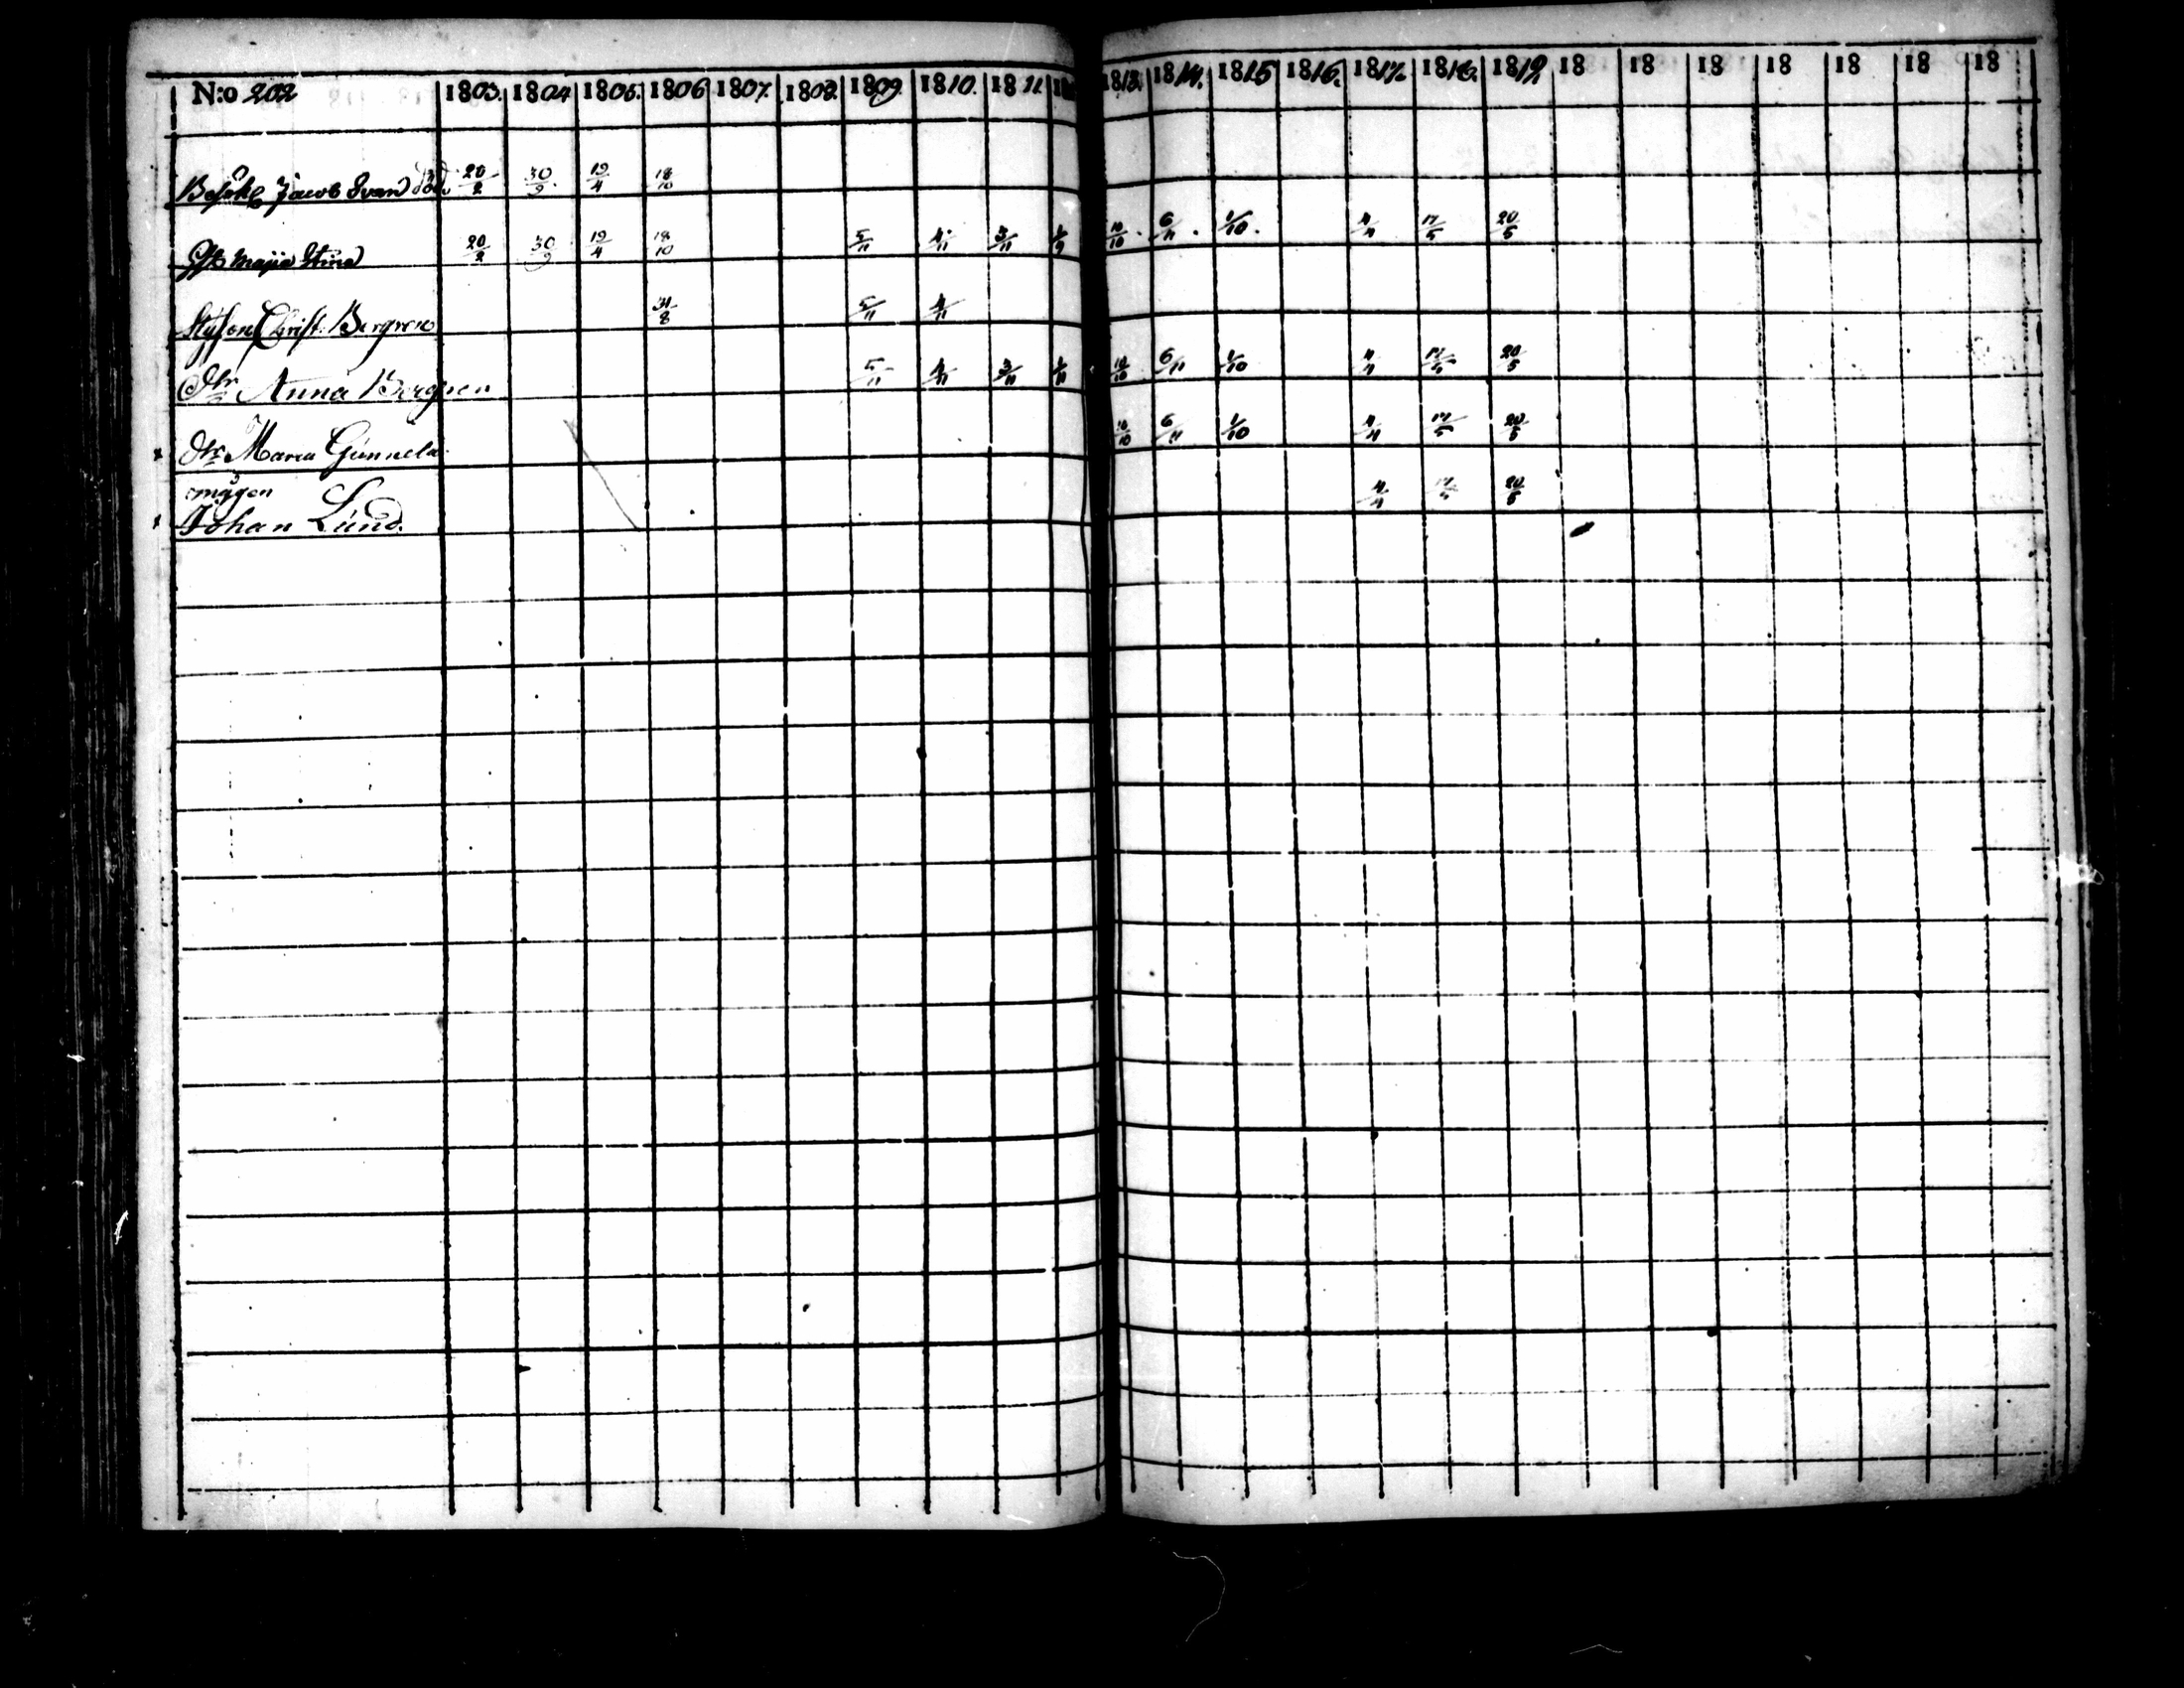 N:o 202 1803. 1804 1805. 1806 1807. 1808. 1809. 1810. 1811. 1813. 1814. 1815 1816. 1817. 1818. 1819 18 18 18 18 18 18 18
Jacob Svan död 20/2 30/9 19/4 18/10
Maja Stina 20/2 30/9 19/4 18/10 5/11 4/11 3/11 10/10 6/11 1/10 4/4 17/5 20/5
Christ. Bergren 31/8 5/11 4/11
Dtr Anna Bergren 5/11 4/11 3/11 1/11 10/10 6/11 1/10 4/4 17/5 20/5
Dtr Maria Gunnela 10/10 6/11 1/10 4/4 17/5 20/5
mågen
Johan Lund. 4/4 17/5 20/5